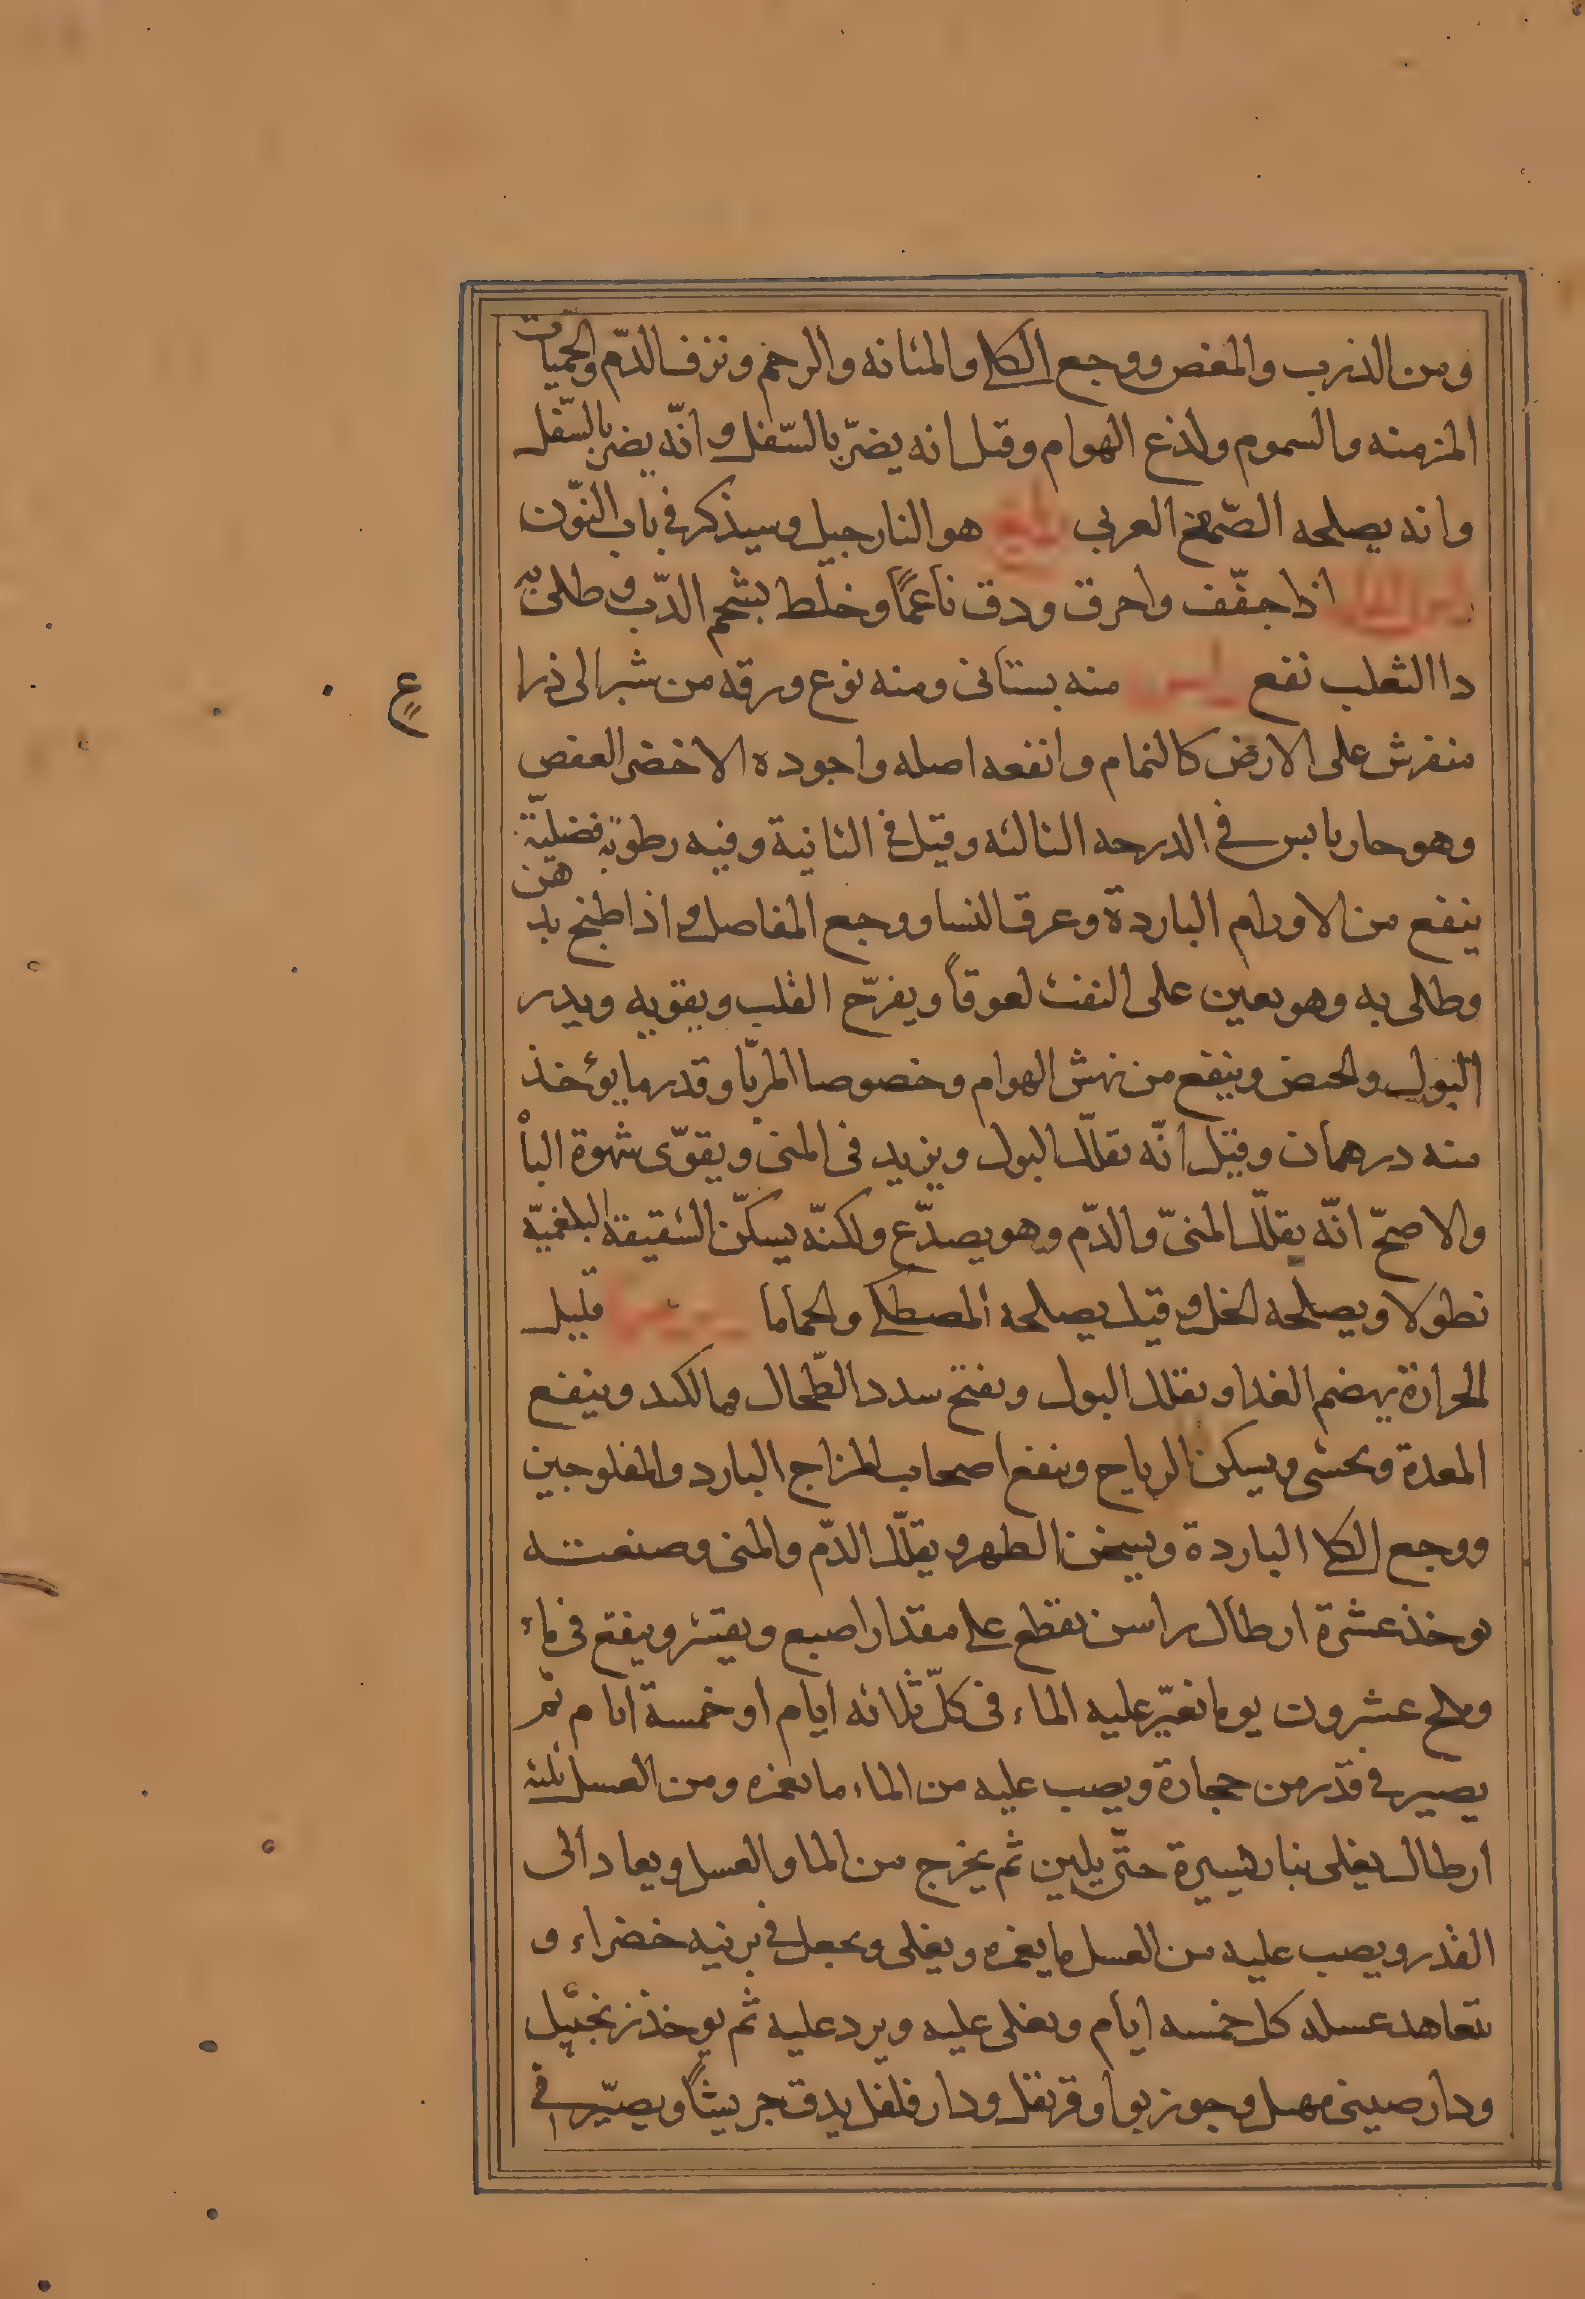 ومن الذرب والمغص ووجع الكلا والمثانه والرحم ونزف الدّم والحمّيات
المزمنه والسموم ولذع الهوام وقيل انه يضرّ بالسّفل و انّه يضر بالسّفل
وانه يصلحه الصّمغ العربي هو النارجيل وسيذكر في باب النّون
اذا جفّف واحرق ودق ناعمًا وخلط بشحم الدّب و طلى به
دا الثعلب نفع منه بستانى ومنه نوع ورقه من شبر الى ذرا
ع
منفرش على الارض كالنمام وانفعه اصله واجوده الاخضر العفص
وهو حار يابس في الدرجه الثالثه وقيل في الثانية وفيه رطوبة فضليّة
ينفع من الاورام الباردة وعرق النسا ووجع المفاصل و اذا طبخ بدهن
وطلى به وهو يعين على النفث لعوقاً ويفرّح القلب ويقويه ويدر
البول والحيض وينفع من نهش الهوام وخصوصا المربّا وقدر ما يؤخذ
منه درهمان وقيل انّه يقلّل البول ويزيد فى المنى ويقوّى شهوة الباْ
والاصحّ انّه يقلّل المنىّ والدّم وهو يصدّع ولكنّه يسكّن الشقيقة البلغميّة
نطولا ويصلحه الخل و قيل يصلحه المصطكى والحماما قليل
الحرارة يهضم الغدا ويقلل البول ويفتح سدد الطّحال والكبد وينفع
المعدة ويحشى ويسكن الرياح وينفع اصحاب المزاج البارد والمفلوجين
ووجع الكلا الباردة ويسخن الظهر و يقلّل الدّم والمنى وصنعته
يوخذ عشرة ارطال راسن يقطع على مقدار اصبع ويقشر وينقع فى ماء
وملح عشرون يوما نغيّر عليه الماء فى كلّ ثلاثه ايام او خمسة ايام ثم
يصير في قدر من حجارة ويصب عليه من الماء ما يغمره ومن العسل ثلثة
ارطال يغلى بنار يسيرة حتّى يلين ثم يخرج من الما والعسل ويعاد الى
القدر ويصب عليه من العسل ما يغمره ويغلى ويجعل في برنيه خضراء و
يتعاهد عسله كل خمسه ايام ويغلى عليه ويرد عليه ثم يوخذ زنجبيل
ودارصينى وهيل وجوز بوا وقرنفل ودارفلفل يدق جريشاً ويصيّر في